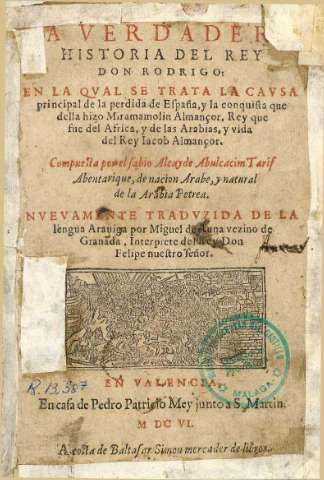 A VERDADER
HISTORIA DEL REY
DON RODRIGO:
EN LA QVAL SE TRATA LA CAVSA
principal de la perdida de España, y la conquista que
della hizo Miramamolin Almançor, Rey que
fue del Africa, y de las Arabias, y vida
del Rey Iacob Almançor.
Compuesta por el sabio Alcayde Abulcacim Tarif
Abentarique, de nacion Arabe, y natural
de la Arabia Petrea.
NVEVAMENTE TRADVZIDA DE LA
lengua Arauiga por Miguel de Luna vezino de
Granada, Interprete del Rey Don
Felipe nuestro señor.
R. 13,387
EN VALENCIA,
En casa de Pedro Patricio Mey junto a S. Martin.
M DC VI.
A costa de Baltasar Simon mercader de libros.
MALAGA